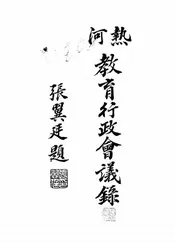 熱河
教育行政會議錄
張翼廷題